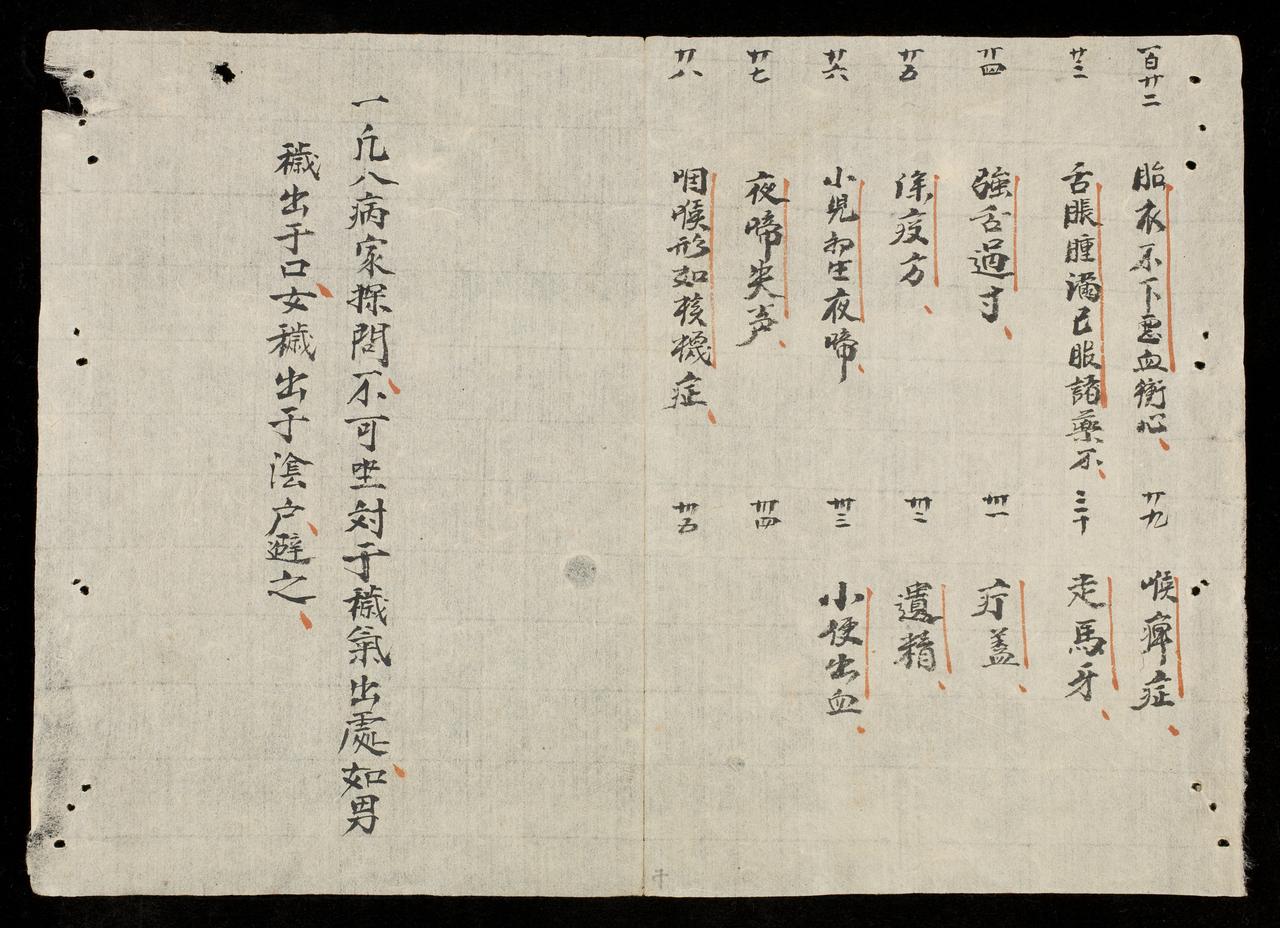 一百廿二 胎衣不下惡血衝心
廿三 舌脹腫滿已服諸藥不
廿四 強舌過寸
廿五 除疫方
廿六 小児初生夜啼
廿七 夜啼失声
廿八 咽喉形如核機症
廿九 喉痺症
三十 走馬牙
卅一 疔蓋
卅二 遺精
卅三 小便出血
卅四
卅五
一凡入病家探問不可坐対于穢氣出處如男
穢出于口女穢出于陰户避之